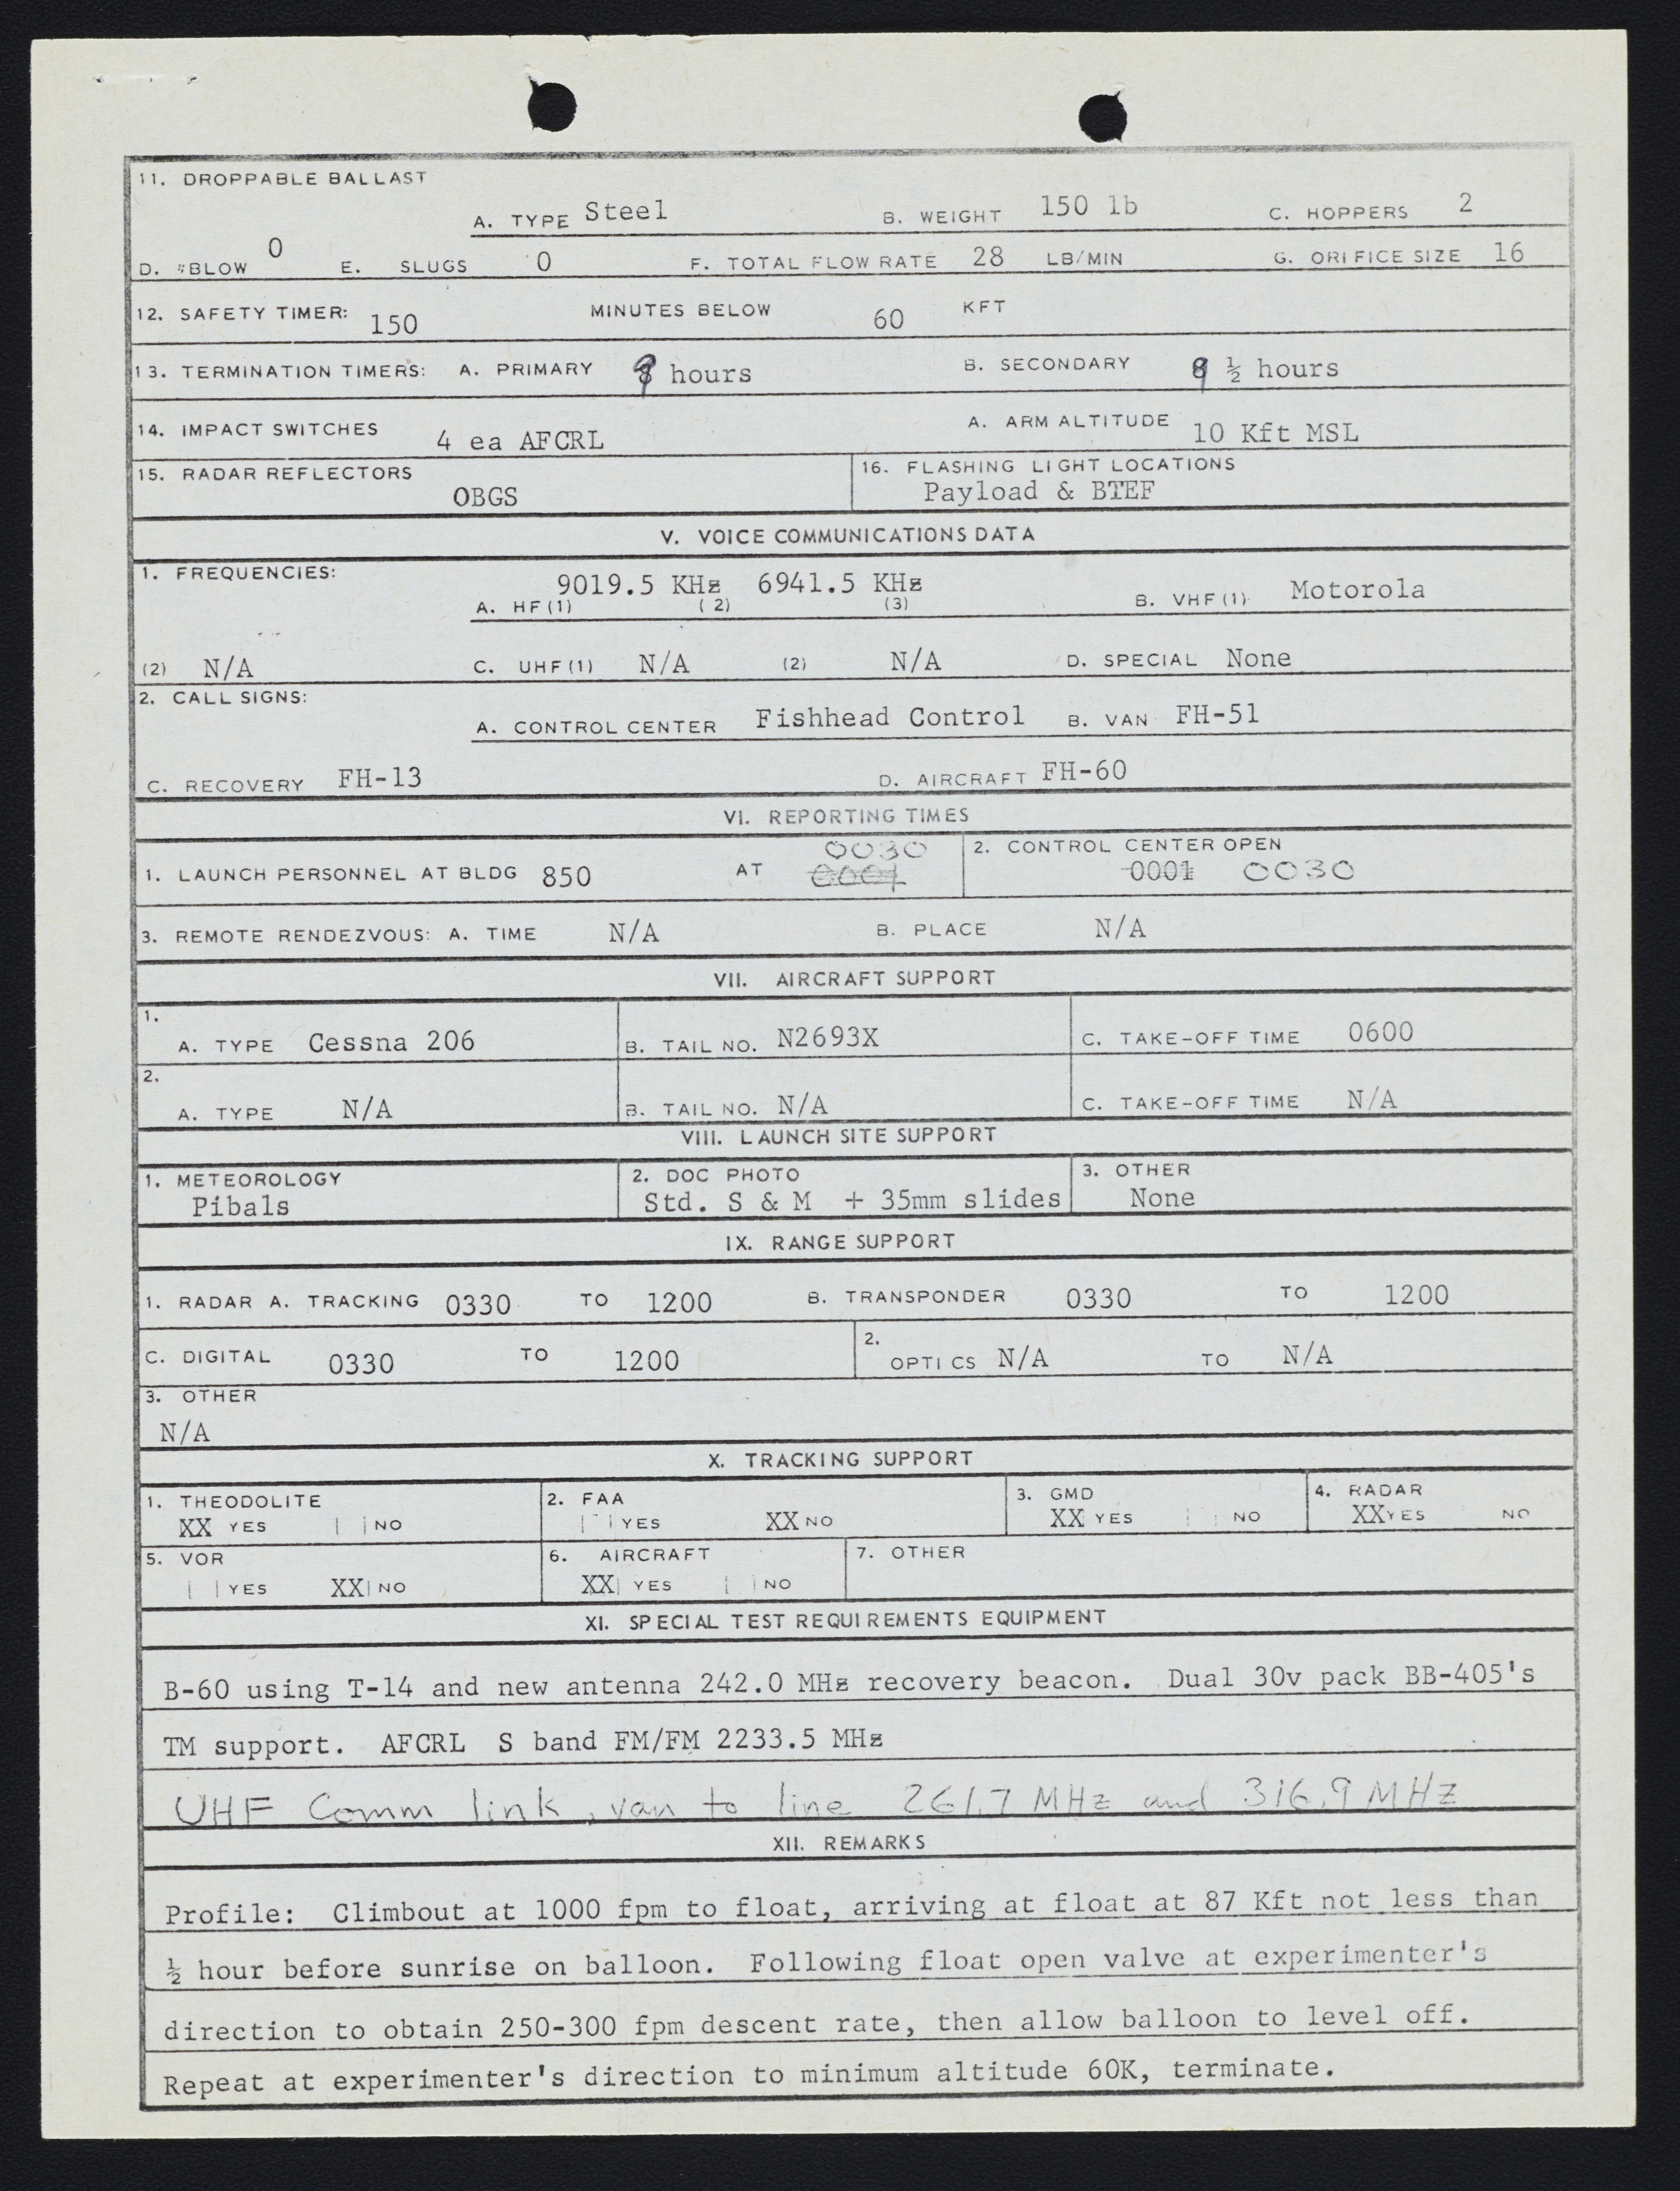 11. DROPPABLE BALLAST
A. TYPE Steel B. WEIGHT 150 lb C. HOPPERS 2
D. #BLOW 0 E. SLUGS 0 F. TOTAL FLOW RATE 28 LB/MIN G. ORIFICE SIZE 16
12. SAFETY TIMER: 150 MINUTES BELOW 60 KFT
13. TERMINATION TIMERS: A. PRIMARY 9 hours B. SECONDARY 9 ½ hours
14. IMPACT SWITCHES 4 ea AFCRL A. ARM ALTITUDE 10 Kft MSL
15. RADAR REFLECTORS 16. FLASHING LIGHT LOCATIONS
OBGS Payload & BTEF
V. VOICE COMMUNICATIONS DATA
1. FREQUENCIES:
9019.5 KHz 6941.5 KHz
A. HF(1) (2) (3) B. VHF(1) Motorola
(2) N/A C. UHF(1) N/A (2) N/A D. SPECIAL None
2. CALL SIGNS:
A. CONTROL CENTER Fishhead Control B. VAN FH-51
C. RECOVERY FH-13 D. AIRCRAFT FH-60
VI. REPORTING TIMES
0030 2. CONTROL CENTER OPEN
1. LAUNCH PERSONNEL AT BLDG 850 AT 0001 0001 0030
3. REMOTE RENDEZVOUS: A. TIME N/A B. PLACE N/A
VII. AIRCRAFT SUPPORT
1.
A. TYPE Cessna 206 B. TAIL NO. N2693X C. TAKE-OFF TIME 0600
2.
A. TYPE N/A B. TAIL NO. N/A C. TAKE-OFF TIME N/A
VIII. LAUNCH SITE SUPPORT
1. METEOROLOGY 2. DOC PHOTO 3. OTHER
Pibals Std. S & M + 35mm slides None
IX. RANGE SUPPORT
1. RADAR A. TRACKING 0330 TO 1200 B. TRANSPONDER 0330 TO 1200
C. DIGITAL 0330 TO 1200 2. OPTICS N/A TO N/A
3. OTHER
N/A
X. TRACKING SUPPORT
1. THEODOLITE 2. FAA 3. GMD 4. RADAR
XX YES NO YES XX NO XX YES NO XX YES NO
5. VOR 6. AIRCRAFT 7. OTHER
YES XX NO XX YES NO
XI. SPECIAL TEST REQUIREMENTS EQUIPMENT
B-60 using T-14 and new antenna 242.0 MHz recovery beacon. Dual 30v pack BB-405's
TM support. AFCRL S band FM/FM 2233.5 MHz
UHF Comm link, van to line 261.7 MHz and 316.9 MHz
XII. REMARKS
Profile: Climbout at 1000 fpm to float, arriving at float at 87 Kft not less than
½ hour before sunrise on balloon. Following float open valve at experimenter's
direction to obtain 250-300 fpm descent rate, then allow balloon to level off.
Repeat at experimenter's direction to minimum altitude 60K, terminate.